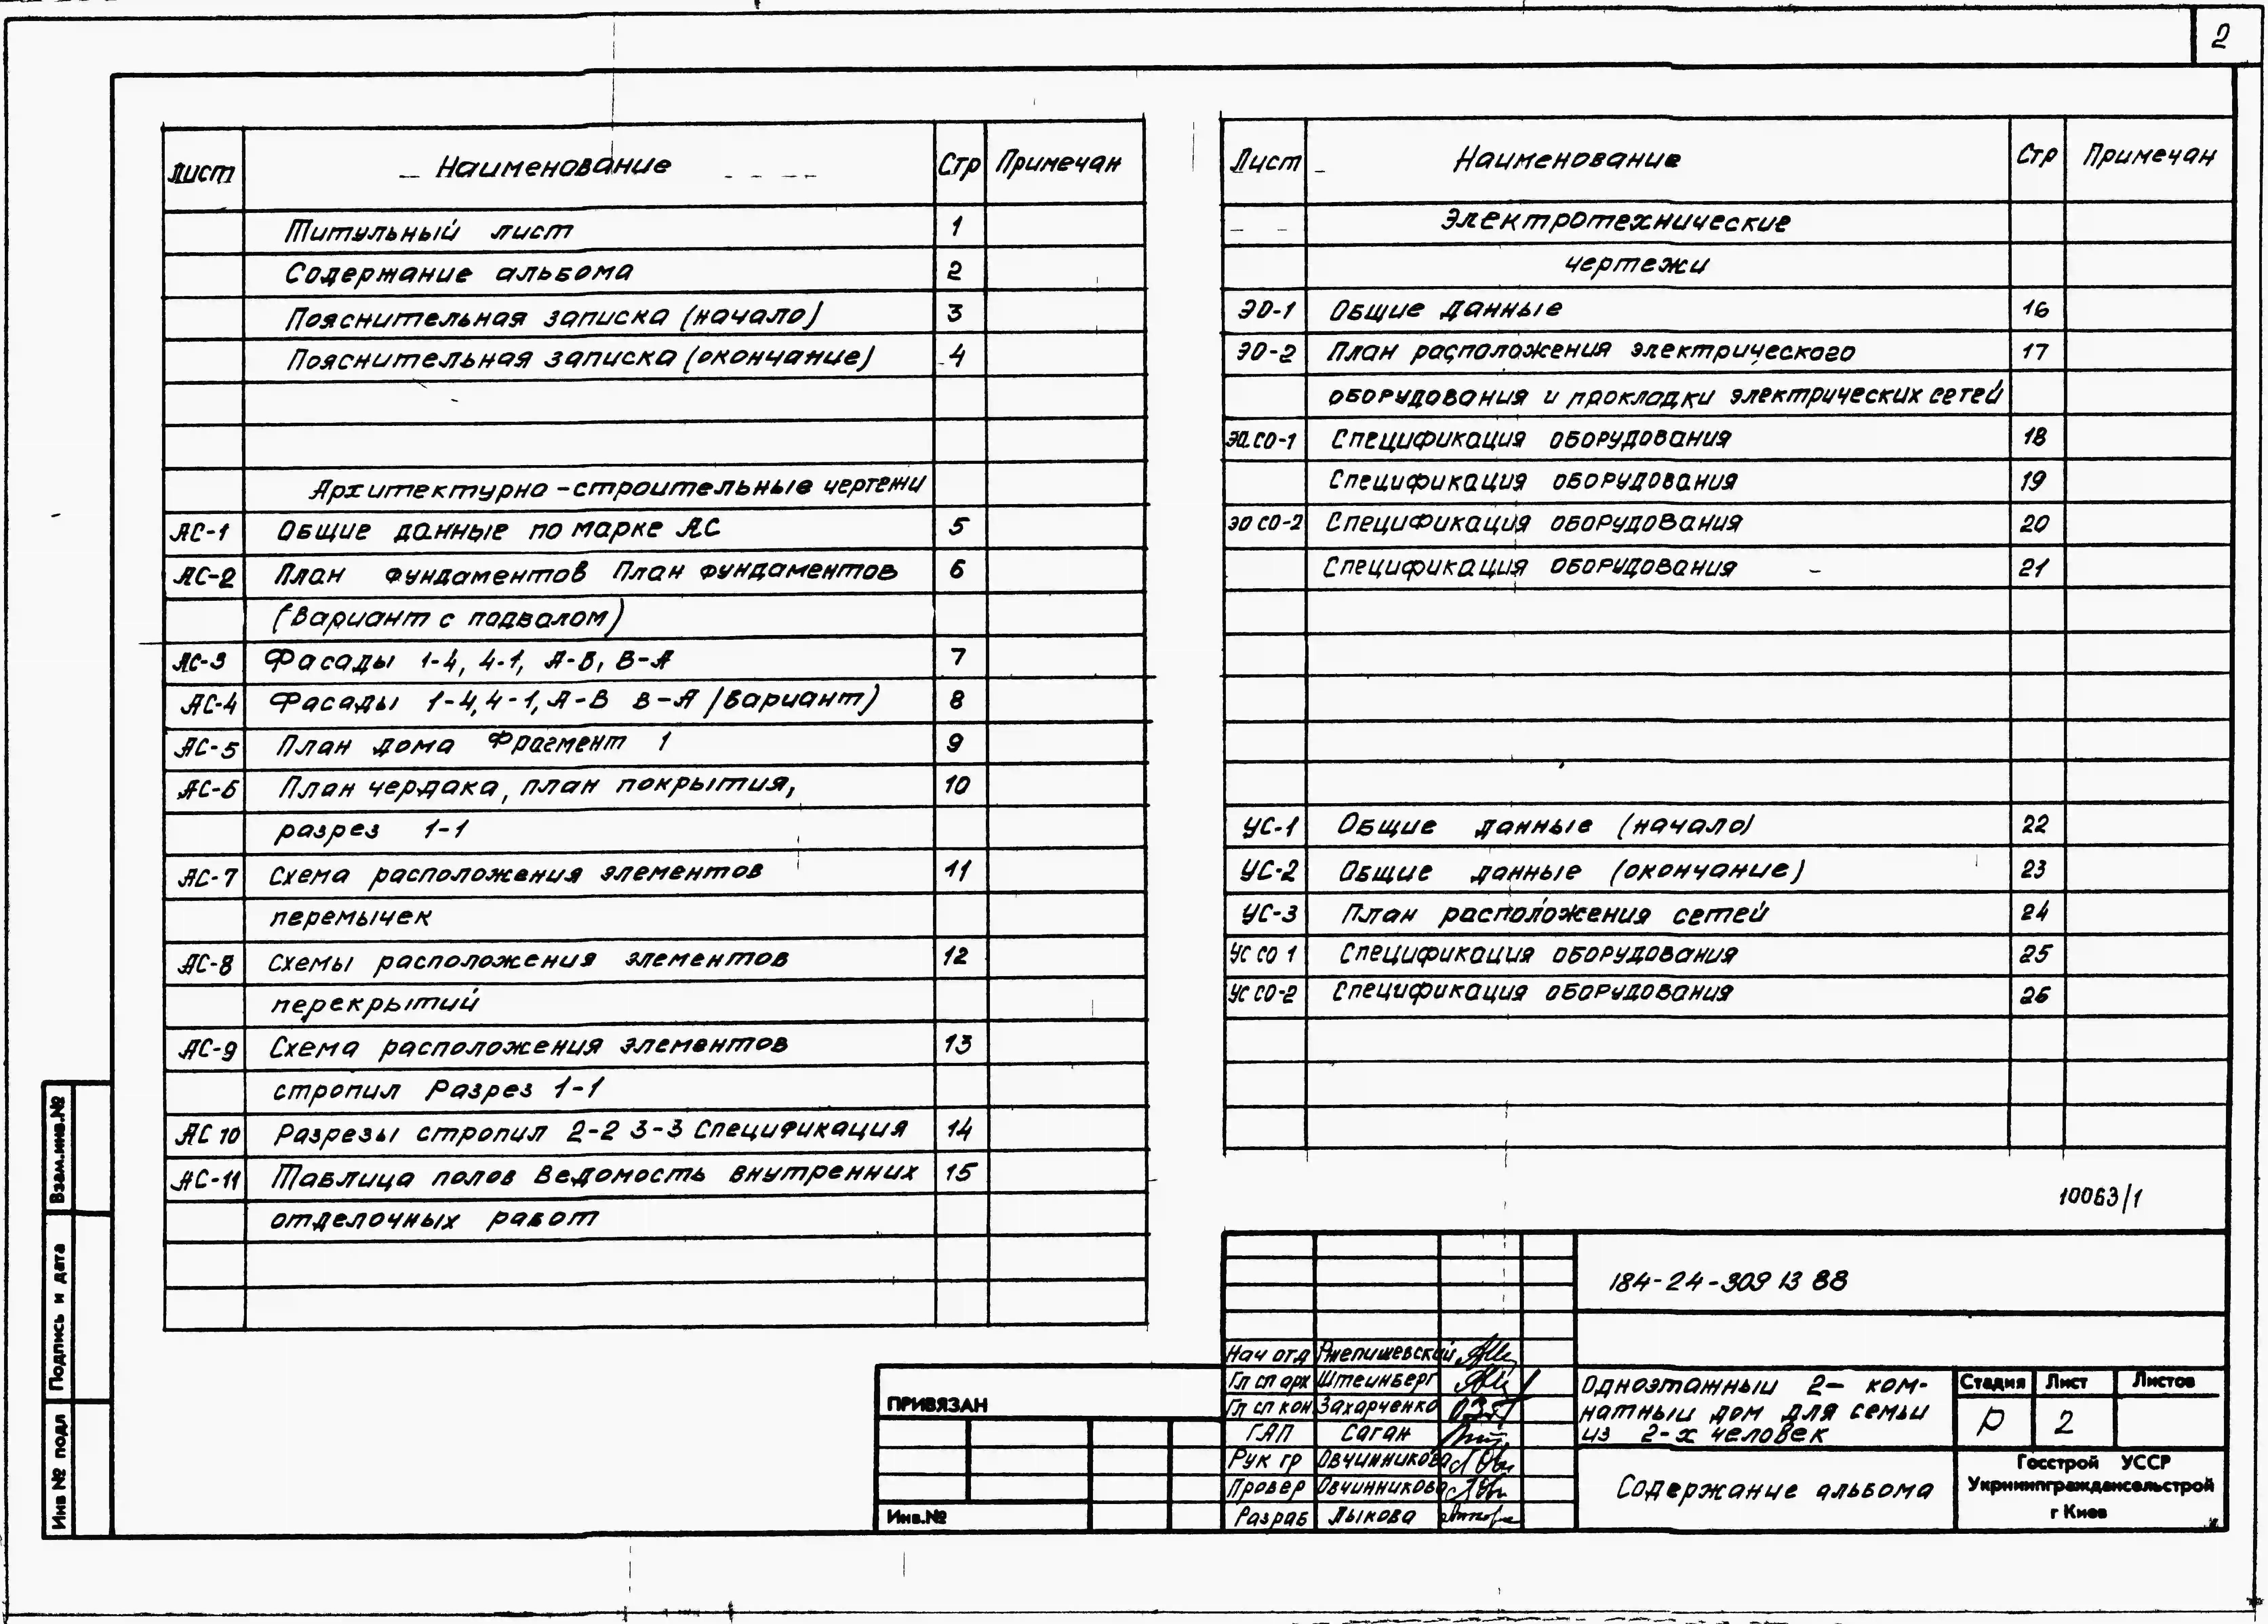 2
Лист Наименование Стр Примечан
Титульный лист 1
Содержание альбома 2
Пояснительная записка (начало) 3
Пояснительная записка (окончание) 4
Архитектурно-строительные чертежи
АС-1 Общие данные по марке АС 5
АС-2 План фундаментов План фундаментов 6
(Вариант с подвалом)
АС-3 Фасады 1-4, 4-1, А-В, В-А 7
АС-4 Фасады 1-4, 4-1, А-В В-А (вариант) 8
АС-5 План дома Фрагмент 1 9
АС-6 План чердака, план покрытия, 10
разрез 1-1
АС-7 Схема расположения элементов 11
перемычек
АС-8 Схемы расположения элементов 12
перекрытий
АС-9 Схема расположения элементов 13
стропил Разрез 1-1
АС 10 Разрезы стропил 2-2 3-3 Спецификация 14
АС-11 Таблица полов Ведомость внутренних 15
отделочных работ
Лист Наименование Стр Примечан
Электротехнические
чертежи
ЭО-1 Общие данные 16
ЭО-2 План расположения электрического 17
оборудования и прокладки электрических сетей
ЭО.СО-1 Спецификация оборудования 18
Спецификация оборудования 19
ЭО СО-2 Спецификация оборудования 20
Спецификация оборудования 21
УС-1 Общие данные (начало) 22
УС-2 Общие данные (окончание) 23
УС-3 План расположения сетей 24
УС СО 1 Спецификация оборудования 25
УС СО-2 Спецификация оборудования 26
10063/1
184-24-309 13 88
Нач отд Ржепишевский
Гл сп арх Штейнберг
Гл сп кон Захарченко
ГАП Саган
Рук гр Овчинникова
Провер Овчинникова
Разраб Лыкова
Одноэтажный 2- ком-
натный дом для семьи
из 2-х человек
Стадия Лист Листов
Р 2
Содержание альбома
Госстрой УССР
Укрниипграждансельстрой
г Киев
ПРИВЯЗАН
Инв.№
Взам.инв.№
Подпись и дата
Инв № подл